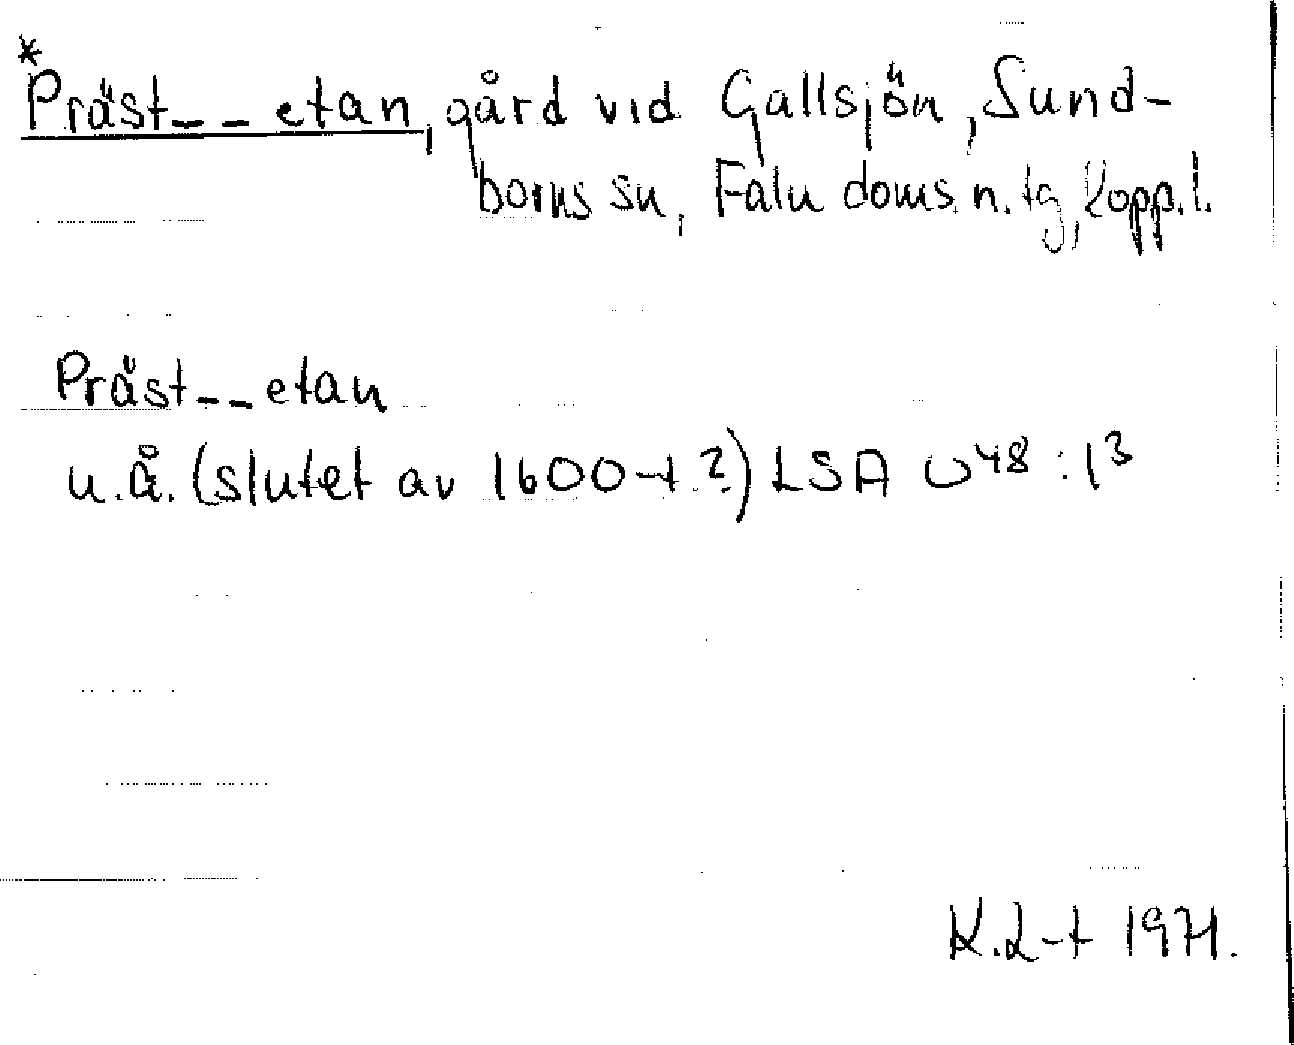 *Präst-- etan, gård vid Gallsjön, Sund-
borns sn, Falu doms. n. tg, Kopp. l.
Präst--etan
u.å. (slutet av 1600-t.?) LSA U48:13
K.L-t 1971.